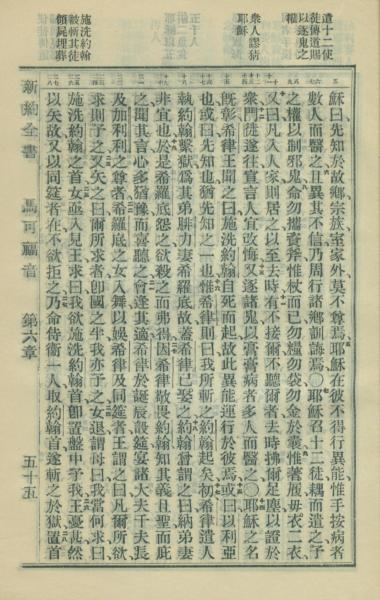 遣十二使
徒傳道賜
以逐鬼之
權
衆人謬猜
耶穌
施洗約翰
被斬其徒
領屍埋葬
穌曰先知於故鄉宗族室家外莫不尊焉耶穌在彼不得行異能惟手按病者
數人而醫之且異其不信乃周行諸鄉訓誨焉〇耶穌召十二徒耦而遣之予
之權以制邪鬼命勿攜資斧惟杖而已勿糧勿袋勿金於囊惟著履毋衣二衣
又曰凡入人家則居之以至去時有不接爾不聽爾者去時拂爾足塵以證於
衆門徒遂往宣言人宜改悔又逐諸鬼以膏膏病者多人而醫之〇耶穌之名
既彰希律王聞之曰施洗約翰自死而起故此異能運行於彼焉或曰以利亞
也或曰先知也猶先知之一也惟希律則曰我所斬之約翰起矣初希律遣人
執約翰繫獄爲其弟腓力妻希羅底故蓋希律已娶之約翰曾謂之曰納弟妻
非宜也於是希羅底怨之欲殺之而弗得因希律敬畏約翰知其義且聖而庇
之聞其言心多猶豫而喜聽之會逢其適希律於誕辰設筵宴諸大夫千夫長
及加利利之尊者希羅底之女入舞以娛希律及同筵者王謂之曰凡爾所欲
求則予之又矢之曰爾所求者卽國之半我亦予之女退謂母曰我當何求曰
施洗約翰之首女亟入見王求曰我欲施洗約翰首卽置盤中予我王憂甚然
以矢故又以同筵者在不欲拒之乃命侍衛一人取約翰首遂斬之於獄置首
新約全書 馬可福音 第六章 五十五